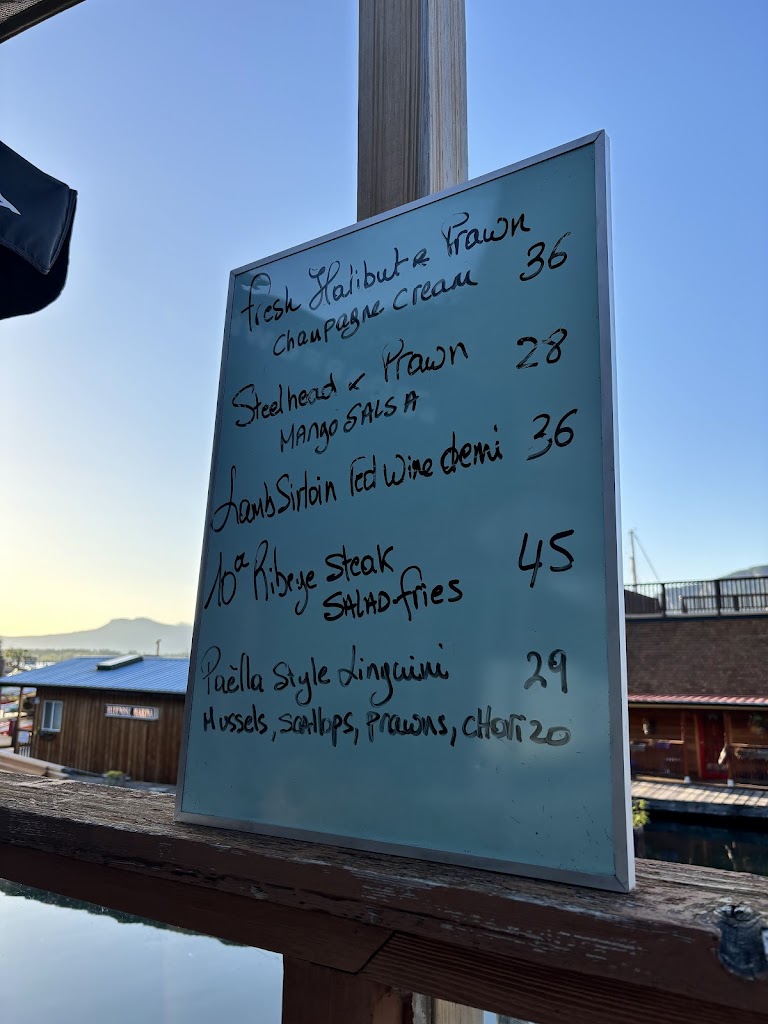 Fresh Halibut & Prawn
Champagne Cream 36
Steelhead & Prawn 28
Mango SALSA
Lamb Sirloin Red Wine demi 36
10oz Ribeye Steak 45
SALAD fries
Paëlla Style Linguini 29
Mussels, scallops, prawns, cHorizo